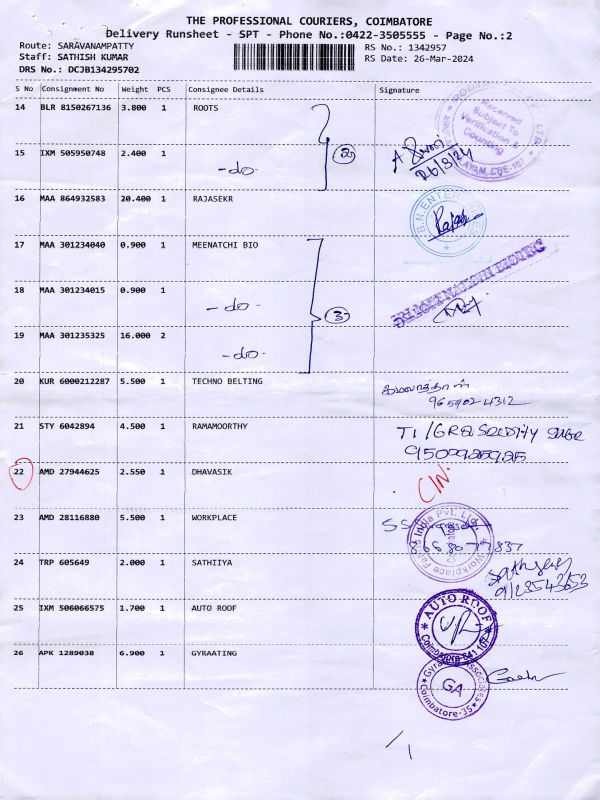 THE PROFESSIONAL COURIERS, COIMBATORE
Delivery Runsheet - SPT - Phone No.:0422-3505555 - Page No.:2
Route: SARAVANAMPATTY
RS No.: 1342957
Staff: SATHISH KUMAR
RS Date: 26-Mar-2024
DRS No.: DCJB134295702
S No Consignment No Weight PCS Consignee Details Signature
14 BLR 8150267136 3.800 1 ROOTS
Received
Subject To
Verification &
Counting
15 IXM 505950748 2.400 1 -do- 2 26/3/24
16 MAA 864932583 20.400 1 RAJASEKR
17 MAA 301234040 0.900 1 MEENATCHI BIO
18 MAA 301234015 0.900 1 -do- 3
19 MAA 301235325 16.000 2 -do-
20 KUR 6000212287 5.500 1 TECHNO BELTING
9659024312
21 STY 6042894 4.500 1 RAMAMOORTHY
22 AMD 27944625 2.550 1 DHAVASIK C/N.
23 AMD 28116880 5.500 1 WORKPLACE
India Pvt. Ltd.
24 TRP 605649 2.000 1 SATHIIYA
25 IXM 506066575 1.700 1 AUTO ROOF
AUTO ROOF
26 APK 1289038 6.900 1 GYRAATING
GA
Coimbatore-35